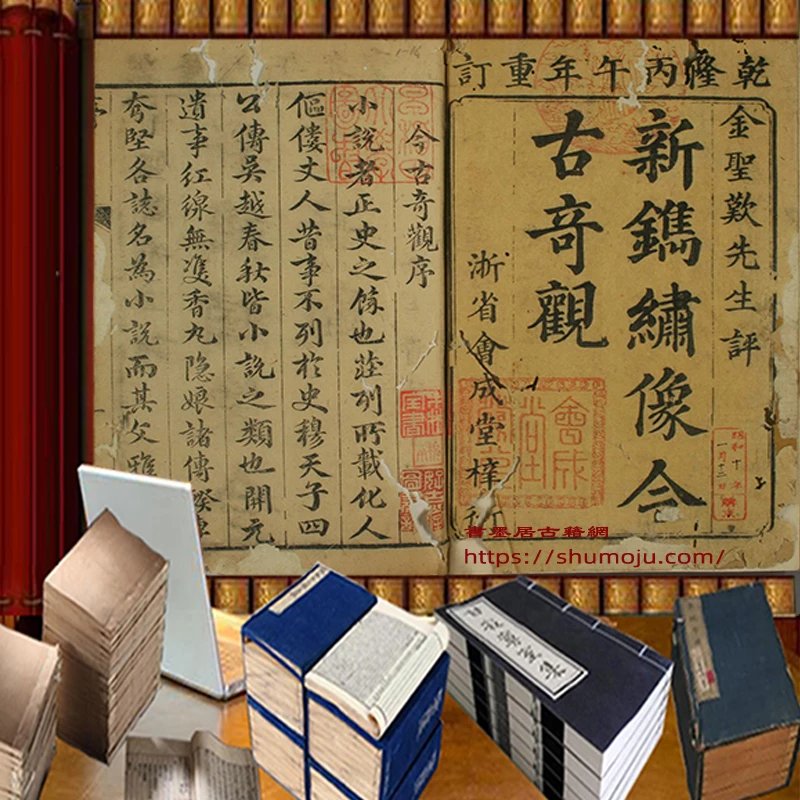 乾隆丙午年重訂
金聖歎先生評
新鐫繡像今
古奇觀
浙省會成堂梓行
昭和十年
一月十二日
今古奇觀序
小說者正史之餘也莊列所載化人
傴僂丈人昔事不列於史穆天子四
公傳吳越春秋皆小說之類也開元
遺事紅線無雙香丸隐娘諸傳暌車
夷堅各誌名為小說而其文雅
書墨居古籍網
https://shumoju.com/